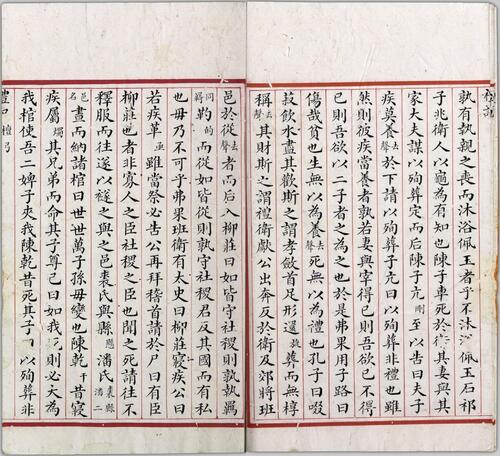 禮記
孰有執親之喪而沐浴佩玉者乎不沐佩玉石祁
子兆衛人以龜為有知也陳子車死於衛其妻與其
家大夫謀以殉葬定而后陳子亢剛至以告曰夫子
疾莫養去聲於下請以殉葬子亢曰以殉葬非禮也雖
然則彼疾當養者孰若妻與宰得已則吾欲已不得
已則吾欲以二子者之為之也於是弗果用子路曰
傷哉貧也生無以為養去聲死無以為禮也孔子曰啜
菽飲水盡其歡斯之謂孝斂首足形還旋葬而無椁
稱去聲其財斯之謂禮衛獻公出奔反於衛及郊將班
邑於從去聲者而后入柳莊曰如皆守社稷則孰執羈
同靮的而從如皆從則孰守社稷君反其國而有私
也毋乃不可乎弗果班衛有太史曰柳莊寢疾公曰
若疾革亟雖當祭必告公再拜稽首請於尸曰有臣
柳莊也者非寡人之臣社稷之臣也聞之死請往不
釋服而往遂以襚之與之邑裘氏與縣懸潘氏裘縣潘二
邑名書而納諸棺曰世世萬子孫毋變也陳乾干昔寢
疾屬燭其兄弟而命其子尊已曰如我則必大為
我棺使吾二婢子夾我陳乾昔死其子以殉葬非
禮記 檀弓